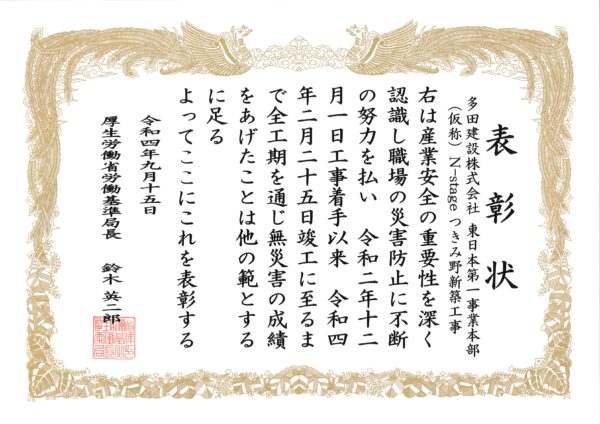 表彰状
多田建設株式会社 東日本第一事業本部
（仮称）N-stage つきみ野新築工事
右は産業安全の重要性を深く
認識し職場の災害防止に不断
の努力を払い 令和二年十二
月一日工事着手以来 令和四
年二月二十五日竣工に至るま
で全工期を通じ無災害の成績
をあげたことは他の範とする
に足る
よってここにこれを表彰する
令和四年九月十五日
厚生労働省労働基準局長 鈴木英二郎